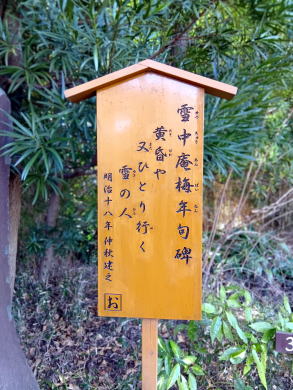 雪中庵梅年句碑
黄昏や
又ひとり行く
雪の人
明治十八年 仲秋建之
お
3